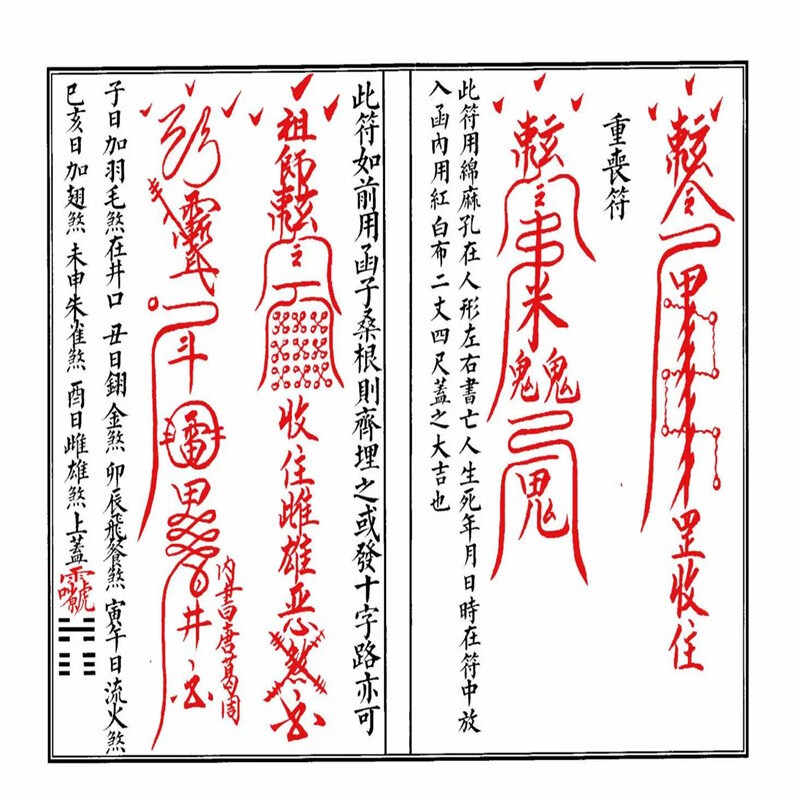 令
甲
罡收住
重喪符
米
鬼鬼
鬼
此符用綿麻孔在人形左右書亡人生死年月日時在符中放
入函內用紅白布二丈四尺蓋之大吉也
此符如前用函子桑根則齊埋之或發十字路亦可
祖師
收住雌雄惡煞
斗
雷
甲
井
內書唐葛周
子日加羽毛煞在井口 丑日鈅金煞 卯辰飛簷煞 寅午日流火煞
巳亥日加翅煞 未申朱雀煞 酉日雌雄煞上蓋